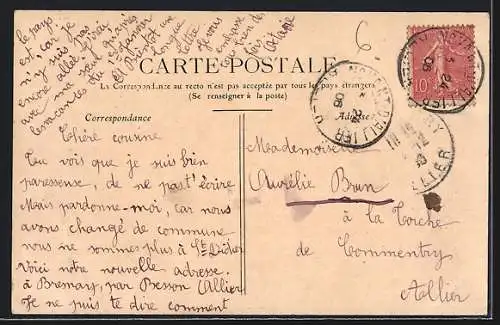 CARTE POSTALE
La Correspondance au recto n'est pas acceptée par tous les pays étrangers
(Se renseigner à la poste)
Correspondance
Adresse
Chère cousine
Tu vois que je suis bien
paressense, de ne pas t'écrire
Mais pardonne-moi, car nous
avons changé de commune
nous ne sommes plus à St Didier
Voici notre nouvelle adresse.
à Bresnay, par Besson (Allier
Je ne puis te dire comment
le pays
est, car je
n'y suis pas
encore allée j'irai
avec ma sœur
les vacances du 1er janvier
A Bientôt une
longue
lettre. Je vous
embrasse
bien des
Mademoiselle
Aurélie Brun
à la Torche
de Commentry
Allier
10
24
06
ALLIER